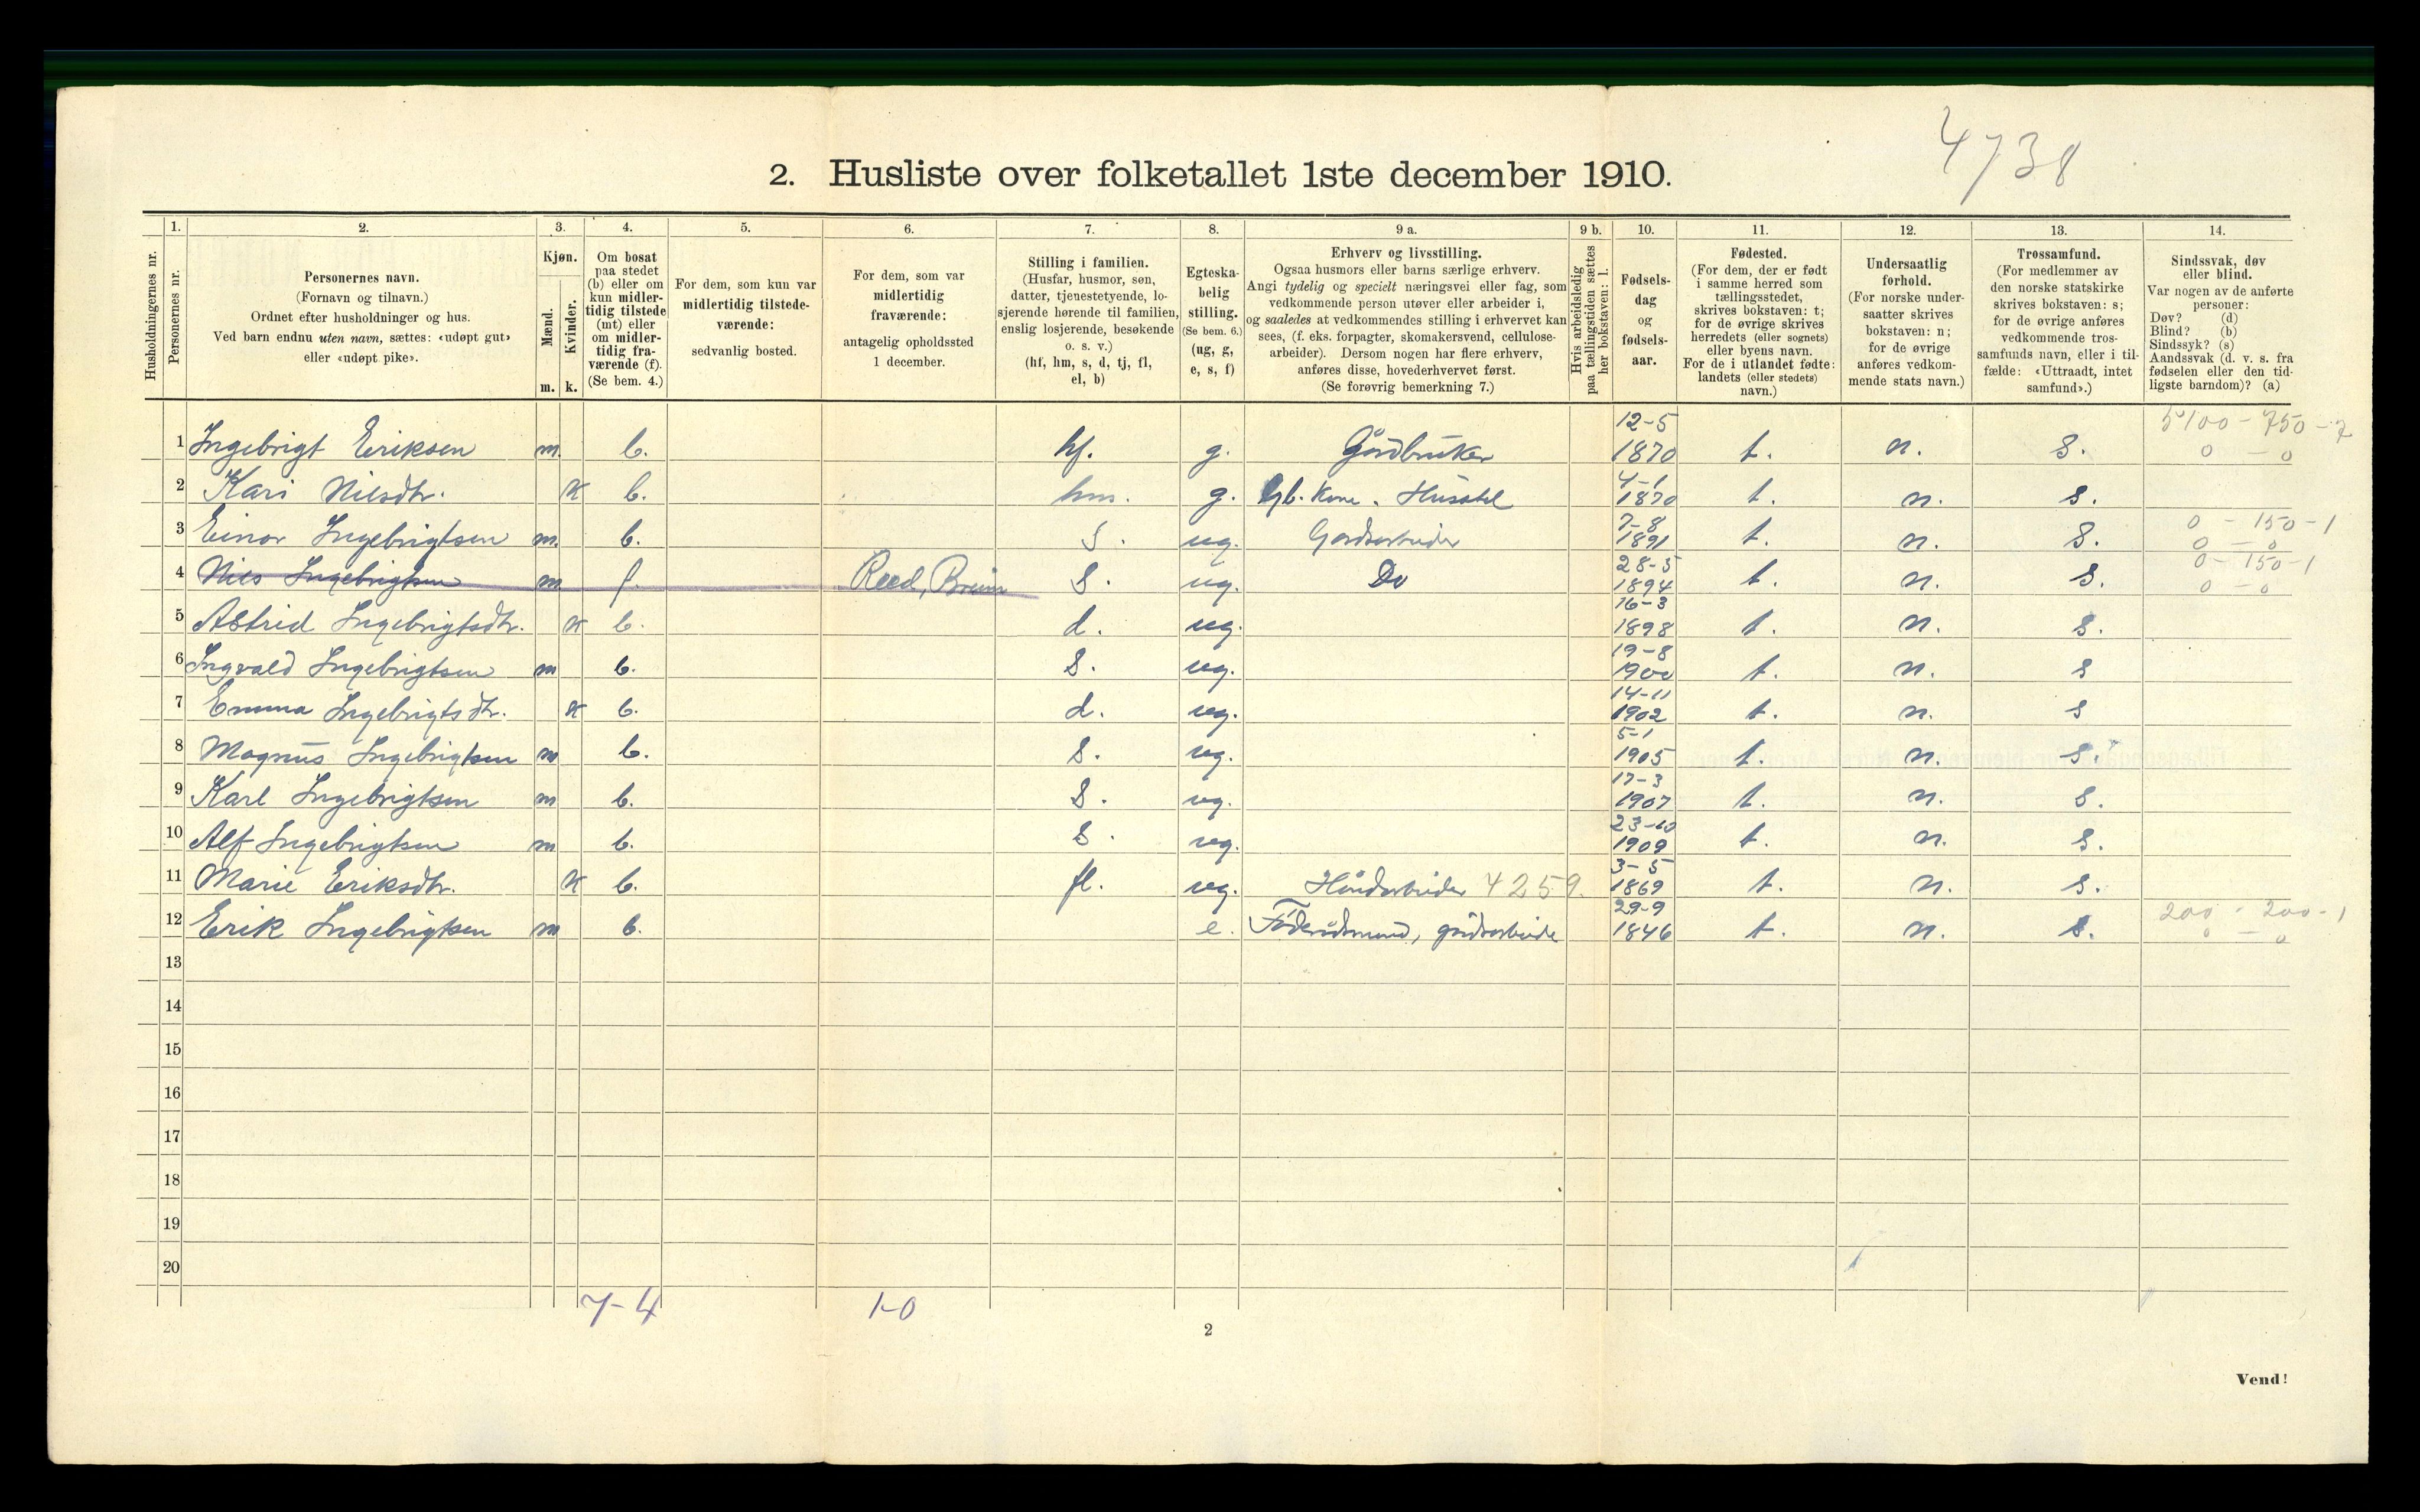 4738
2. Husliste over folketallet 1ste december 1910.
1. 2. 3. 4. 5. 6. 7. 8. 9 a. 9 b. 10. 11. 12. 13. 14.
Husholdningernes nr.
Personernes nr.
Personernes navn.
(Fornavn og tilnavn.)
Ordnet efter husholdninger og hus.
Ved barn endnu uten navn, sættes: «udøpt gut»
eller «udøpt pike».
Kjøn.
Mænd.
Kvinder.
m. k.
Om bosat
paa stedet
(b) eller om
kun midler-
tidig tilstede
(mt) eller
om midler-
tidig fra-
værende (f).
(Se bem. 4.)
For dem, som kun var
midlertidig tilstede-
værende:
sedvanlig bosted.
For dem, som var
midlertidig
fraværende:
antagelig opholdssted
1 december.
Stilling i familien.
(Husfar, husmor, søn,
datter, tjenestetyende, lo-
sjerende hørende til familien,
enslig losjerende, besøkende
o. s. v.)
(hf, hm, s, d, tj, fl,
el, b)
Egteska-
belig
stilling.
(Se bem. 6.)
(ug, g,
e, s, f)
Erhverv og livsstilling.
Ogsaa husmors eller barns særlige erhverv.
Angi tydelig og specielt næringsvei eller fag, som
vedkommende person utøver eller arbeider i,
og saaledes at vedkommendes stilling i erhvervet kan
sees, (f. eks. forpagter, skomakersvend, cellulose-
arbeider). Dersom nogen har flere erhverv,
anføres disse, hovederhvervet først.
(Se forøvrig bemerkning 7.)
Hvis arbeidsledig
paa tællingstiden sættes
her bokstaven: l.
Fødsels-
dag
og
fødsels-
aar.
Fødested.
(For dem, der er født
i samme herred som
tællingsstedet,
skrives bokstaven: t;
for de øvrige skrives
herredets (eller sognets)
eller byens navn.
For de i utlandet fødte:
landets (eller stedets)
navn.)
Undersaatlig
forhold.
(For norske under-
saatter skrives
bokstaven: n;
for de øvrige
anføres vedkom-
mende stats navn.)
Trossamfund.
(For medlemmer av
den norske statskirke
skrives bokstaven: s;
for de øvrige anføres
vedkommende tros-
samfunds navn, eller i til-
fælde: «Uttraadt, intet
samfund».)
Sindssvak, døv
eller blind.
Var nogen av de anførte
personer:
Døv? (d)
Blind? (b)
Sindssyk? (s)
Aandssvak (d. v. s. fra
fødselen eller den tid-
ligste barndom)? (a)
1 Ingebrigt Eriksen m. b. hf. g. Gårdbruker 12-5 1870 t. n. s. 5100 - 750 - 7 0 - 0
2 Kari Nilsdtr. k b. hm. g. Gb. kone. Husstel 4-1 1870 t. n. s.
3 Einar Ingebrigtsen m. b. s. ug. Gardsarbeider 7-8 1891 t. n. s. 0 - 150 - 1 0 - 0
4 Nils Ingebrigtsen m f. Reed, Breim s. ug. Do 28-5 1894 t. n. s. 0 - 150 - 1 0 - 0
5 Astrid Ingebrigtsdtr. k b. d. ug. 16-3 1898 t. n. s.
6 Ingvald Ingebrigtsen m b. s. ug. 19-8 1900 t. n. s
7 Emma Ingebrigtsdtr. k b. d. ug. 14-11 1902 t. n. s
8 Magnus Ingebrigtsen m b. s. ug. 5-1 1905 t. n. s.
9 Karl Ingebrigtsen m b. s. ug. 17-3 1907 t. n. s.
10 Alf Ingebrigtsen m b. s. ug. 23-10 1909 t. n. s.
11 Marie Eriksdtr. k b. fl. ug. Håndarbeider 4259. 3-5 1869 t. n. s.
12 Erik Ingebrigtsen m b. e. Föderådsmand, gårdsarbeide 29-9 1846 t. n. s. 200 - 200 - 1 0 - 0
13
14
15
16
17
18
19
20
7-4 1-0
2
Vend!